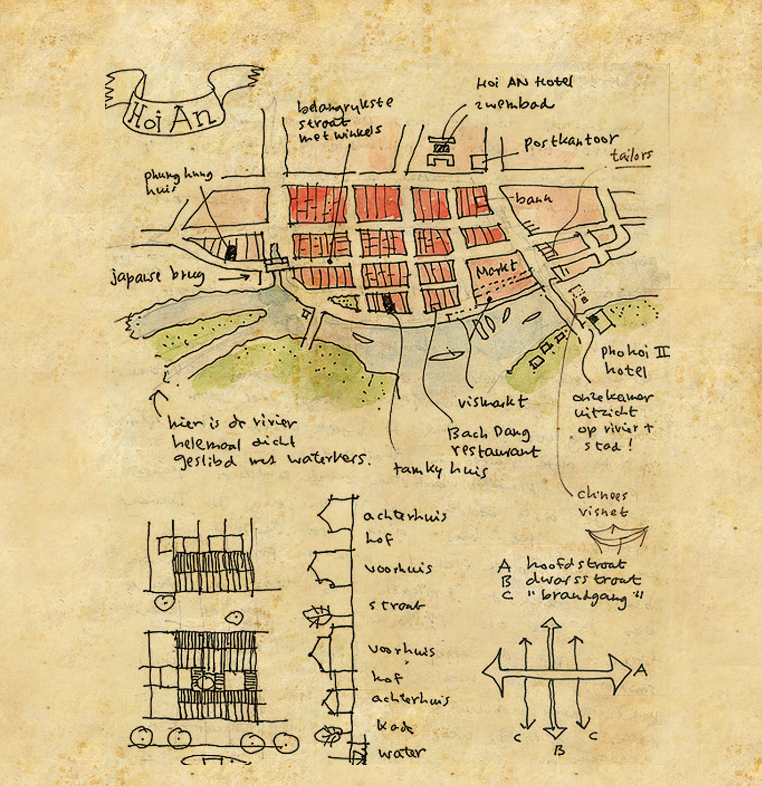 Hoi An
belangrykste
straat
met winkels
Hoi AN Hotel
zwembad
postkantoor
tailors
phung hung
huis
bank
japanse brug
Markt
pho hoi II
hotel
onze kamer
uitzicht
op rivier +
stad!
vismarkt
Bach Dang
restaurant
tamky huis
hier is de rivier
helemaal dicht
geslibd met waterkers.
chinees
visnet
achterhuis
hof
voorhuis
straat
voorhuis
hof
achterhuis
kade
water
A hoofdstraat
B dwarsstraat
C "brandgang"
A
C
B
C